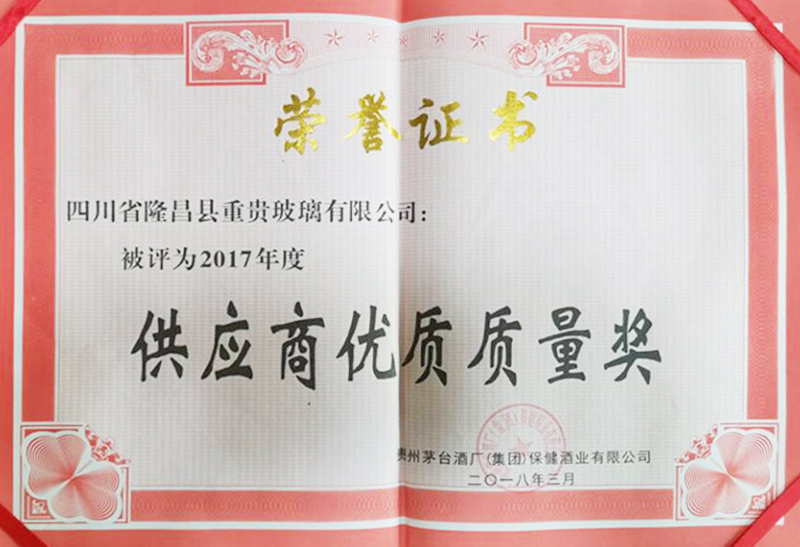 荣誉证书
四川省隆昌县重贵玻璃有限公司：
被评为2017年度
供应商优质质量奖
贵州茅台酒厂(集团)保健酒业有限公司
二〇一八年三月